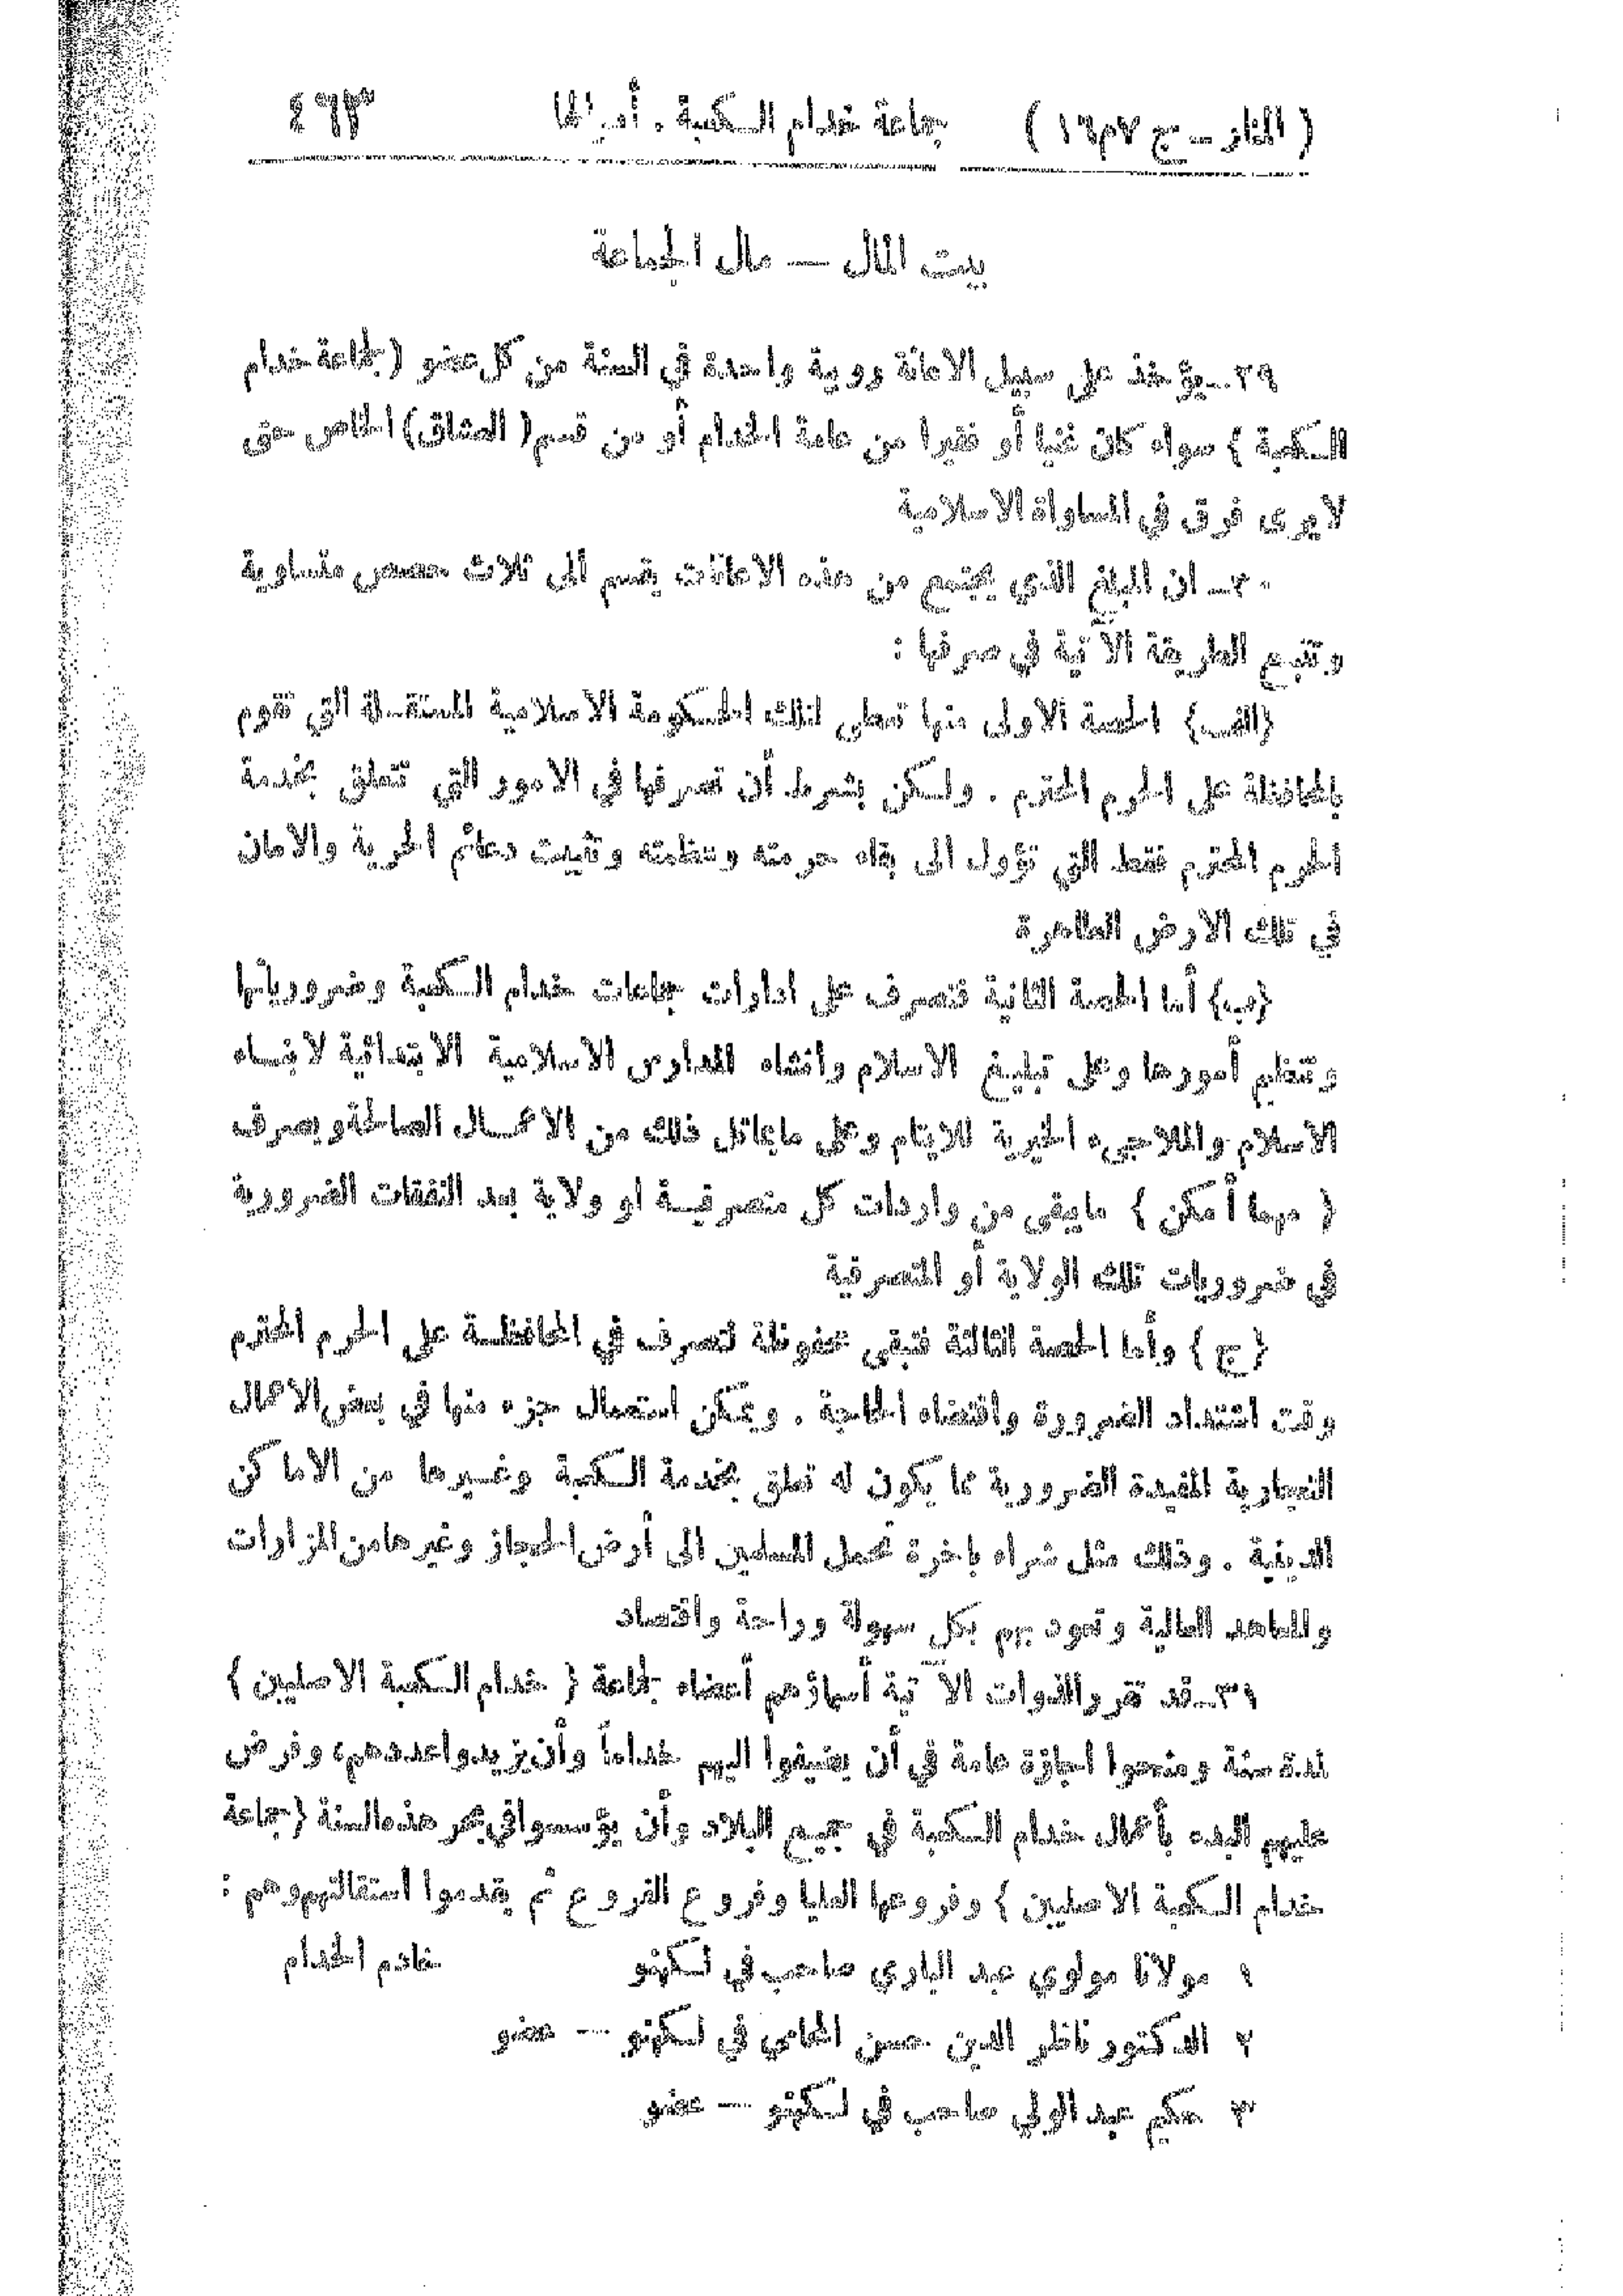 ( المنار – ج ٧ م ١٦ ) جماعة خدام الكعبة . أموالها ٤٦٣
بيت المال — مال الجماعة
٢٩ــ يؤخذ على سبيل الاعانة روبية واحدة في السنة من كل عضو ( لجماعة خدام
الكعبة ) سواء كان غنيا أو فقيرا من عامة الخدام أو من قسم ( العشاق ) الخاص حتى
لا يرى فرق في المساواة الاسلامية
٣٠ــ ان المبلغ الذي يجتمع من هذه الاعانات يقسم الى ثلاث حصص متساوية
وتتبع الطريقة الآتية في صرفها :
(الف) الحصة الاولى منها تعطى لتلك الحكومة الاسلامية المستقلة التي تقوم
بالمحافظة على الحرم المحترم . ولكن بشرط أن تصرفها في الامور التي تتعلق بخدمة
الحرم المحترم فقط التي تؤول الى بقاء حرمته وعظمته وتثبيت دعائم الحرية والامان
في تلك الارض الطاهرة
(ب) أما الحصة الثانية فتصرف على ادارات جماعات خدام الكعبة وضرورياتها
وتنظيم أمورها وعلى تبليغ الاسلام وانشاء المدارس الاسلامية الابتدائية لابناء
الاسلام والملاجيء الخيرية للايتام وعلى ما يماثل ذلك من الاعمال الصالحة ويصرف
( مهما أمكن ) ما يبقى من واردات كل متصرفية او ولاية بعد النفقات الضرورية
في ضروريات تلك الولاية أو المتصرفية
(ج) وأما الحصة الثالثة فتبقى محفوظة لتصرف في المحافظة على الحرم المحترم
وقت اشتداد الضرورة واقتضاء الحاجة . ويمكن استعمال جزء منها في بعض الاعمال
التجارية المفيدة الضرورية مما يكون له تعلق بخدمة الكعبة وغيرها من الاماكن
الدينية . وذلك مثل شراء باخرة تحمل المسلمين الى أرض الحجاز وغيرها من المزارات
والمعاهد العالية وتعود بهم بكل سهولة وراحة واقتصاد
٣١ــ قد تقرر والذوات الآتية أسماؤهم أعضاء لجماعة ( خدام الكعبة الاصليين )
لمدة سنة ومنحوا اجازة عامة في أن يضيفوا اليهم خداماً وأن يزيدوا عددهم، وفرض
عليهم البدء بأعمال خدام الكعبة في جميع البلاد وأن يؤسسوا في بحر هذه السنة (جماعة
خدام الكعبة الاصليين ) وفروعها العليا وفروع الفروع ثم يقدموا استقالتهم وهم :
١ مولانا مولوي عبد الباري صاحب في لكهنو خادم الخدام
٢ الدكتور ناظر الدين حسن المحامي في لكهنو — عضو
٣ حكيم عبد الولي صاحب في لكهنو — عضو